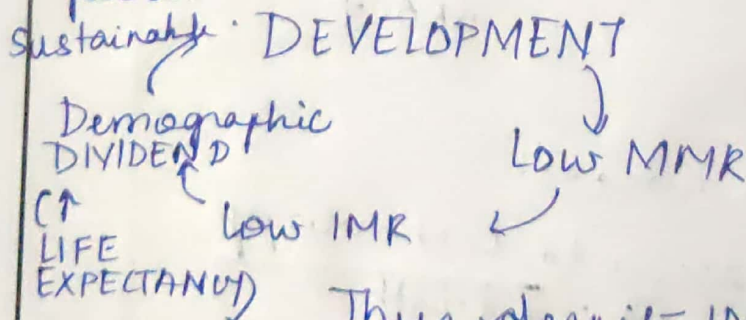 Sustainable DEVELOPMENT
Demographic
DIVIDEND
Low MMR
(↑
Low IMR
LIFE
EXPECTANCY)
Thus